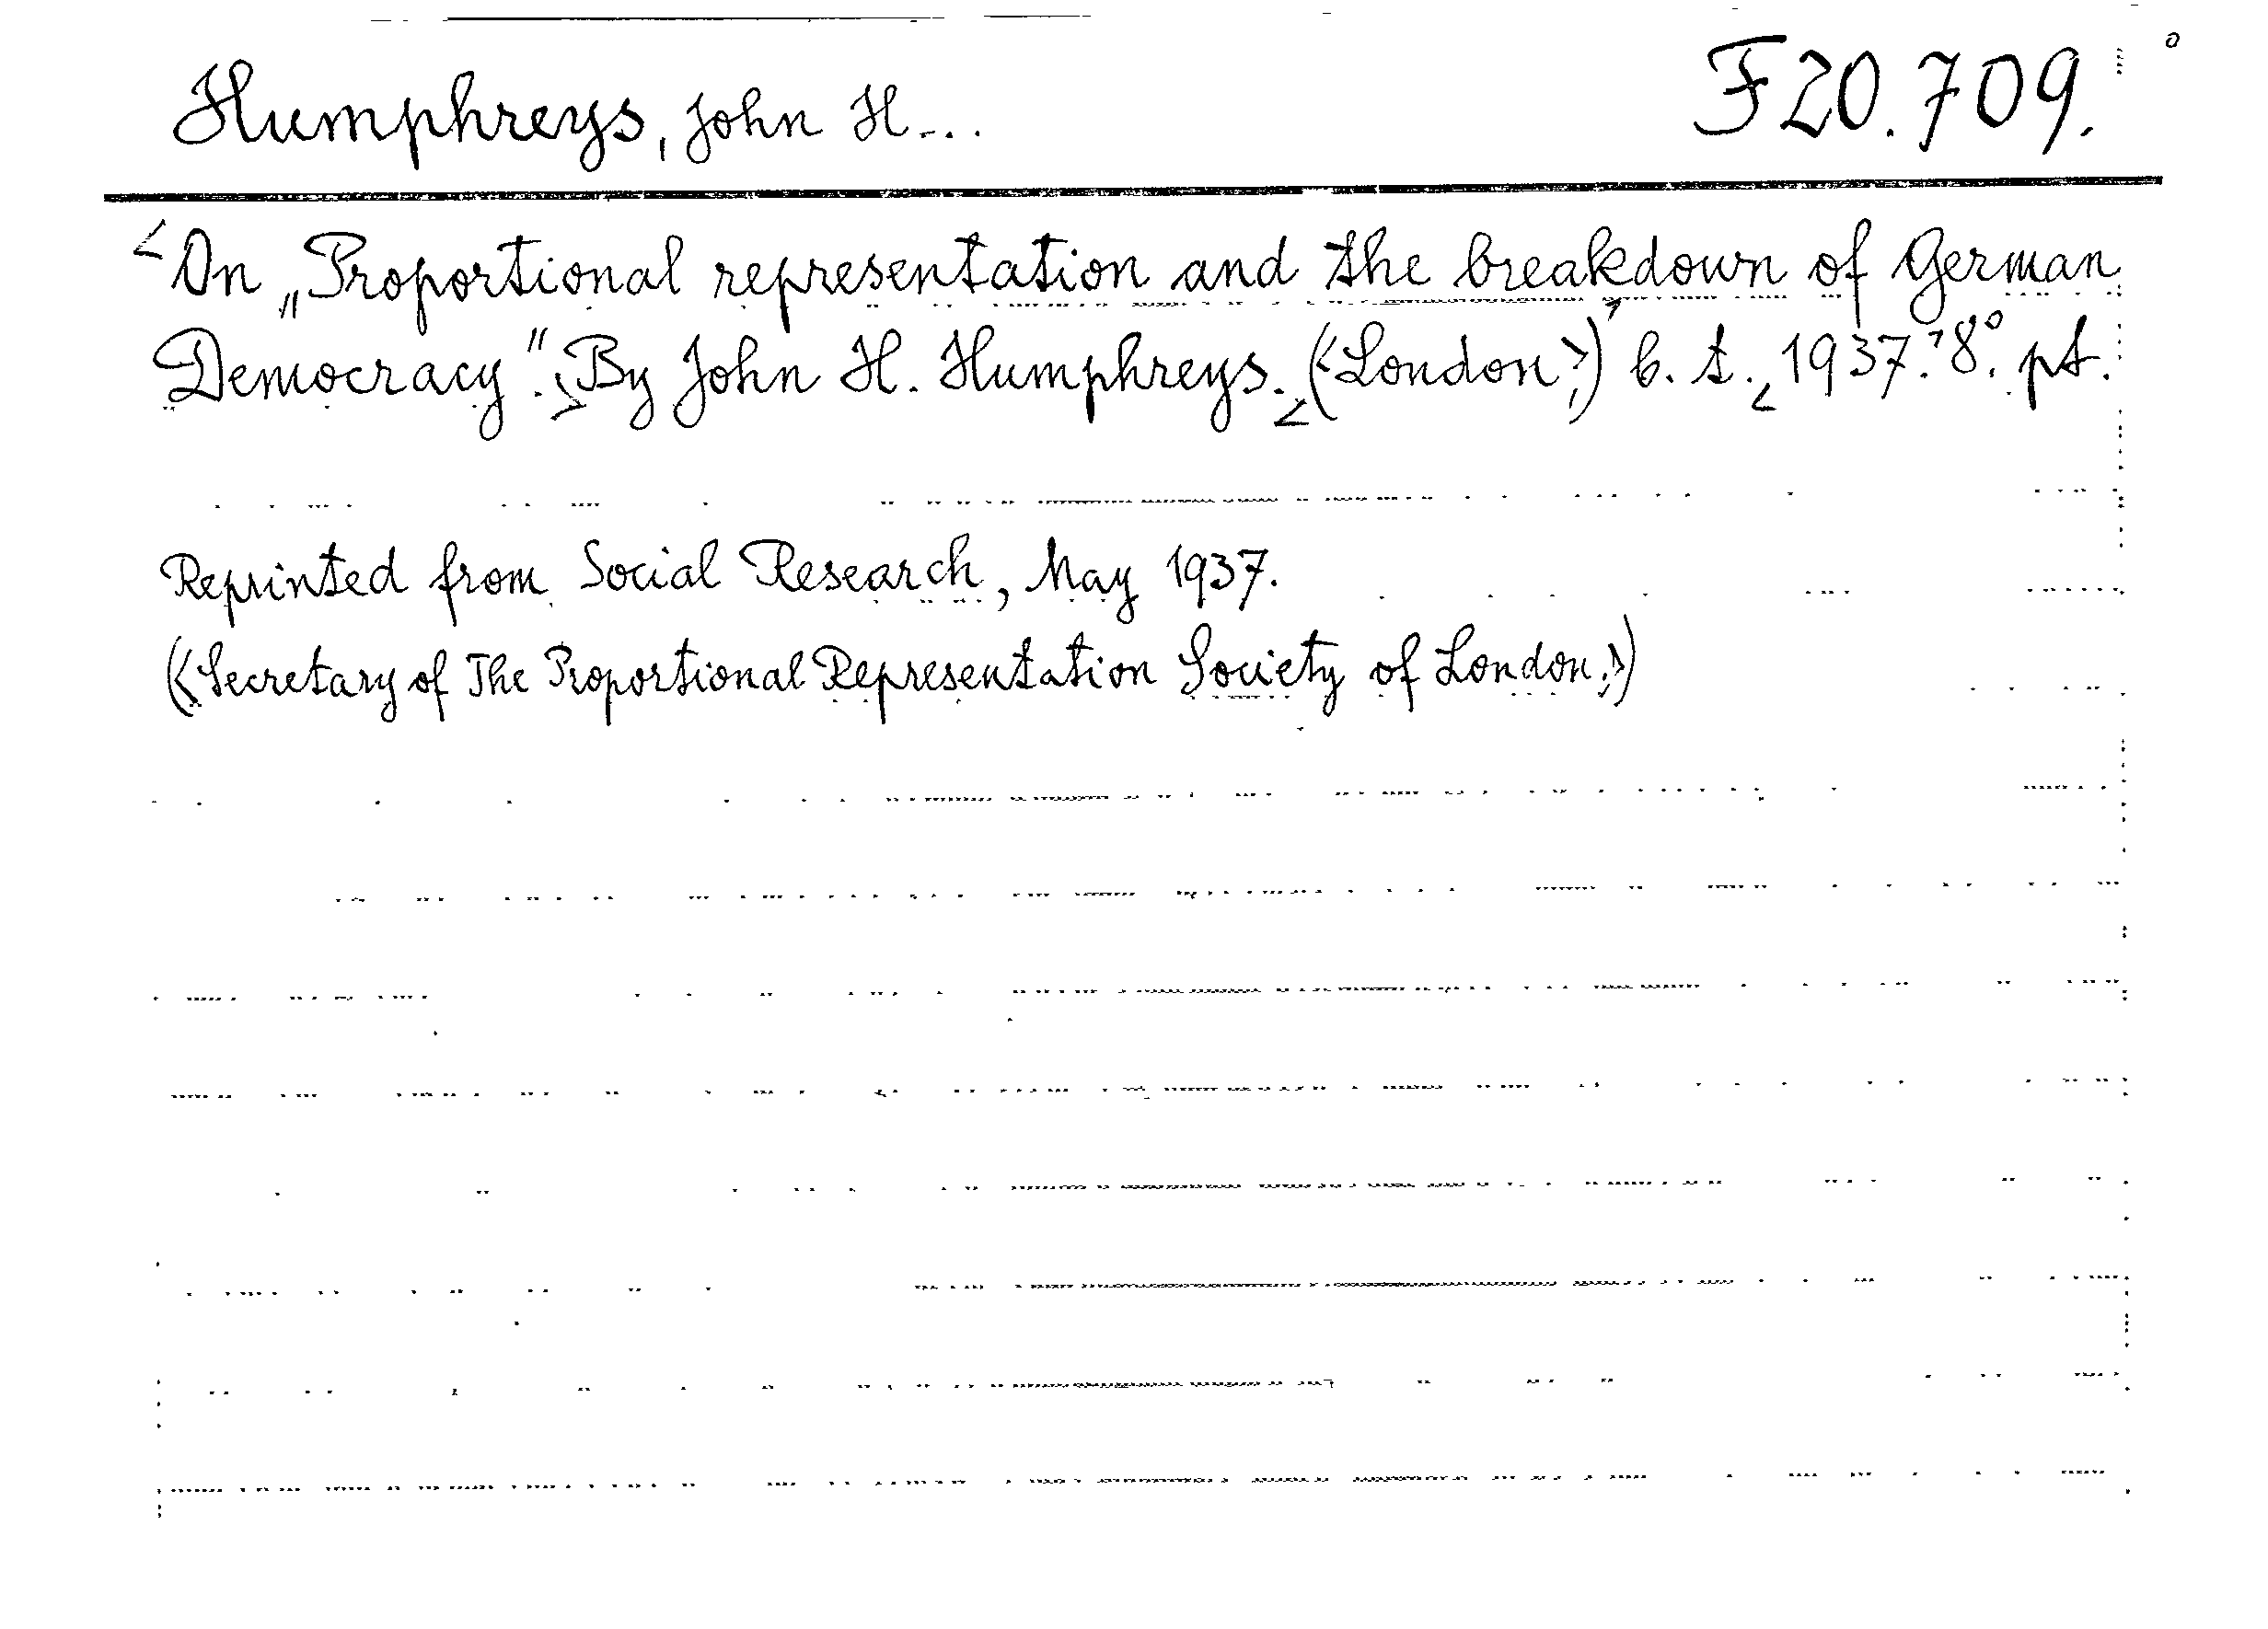 Humphreys, John H... F20.709.
<On „Proportional representation and the breakdown of German
Democracy".> By John H. Humphreys. <(<London,>)> b. t. <1937.> 8°. pt.
Reprinted from Social Research, May 1937.
(<Secretary of The Proportional Representation Society of London.>)